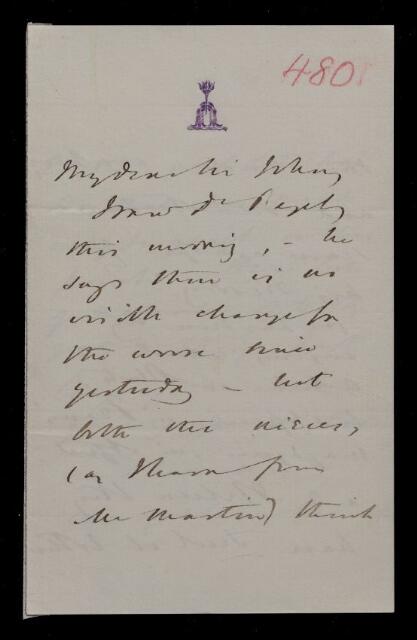 480
My dear Sir John,
I saw Dr Bayly
this morning, – he
says there is no
visible change for
the worse since
yesterday – but
both the nieces,
(as I hear from
Mr Martin) think